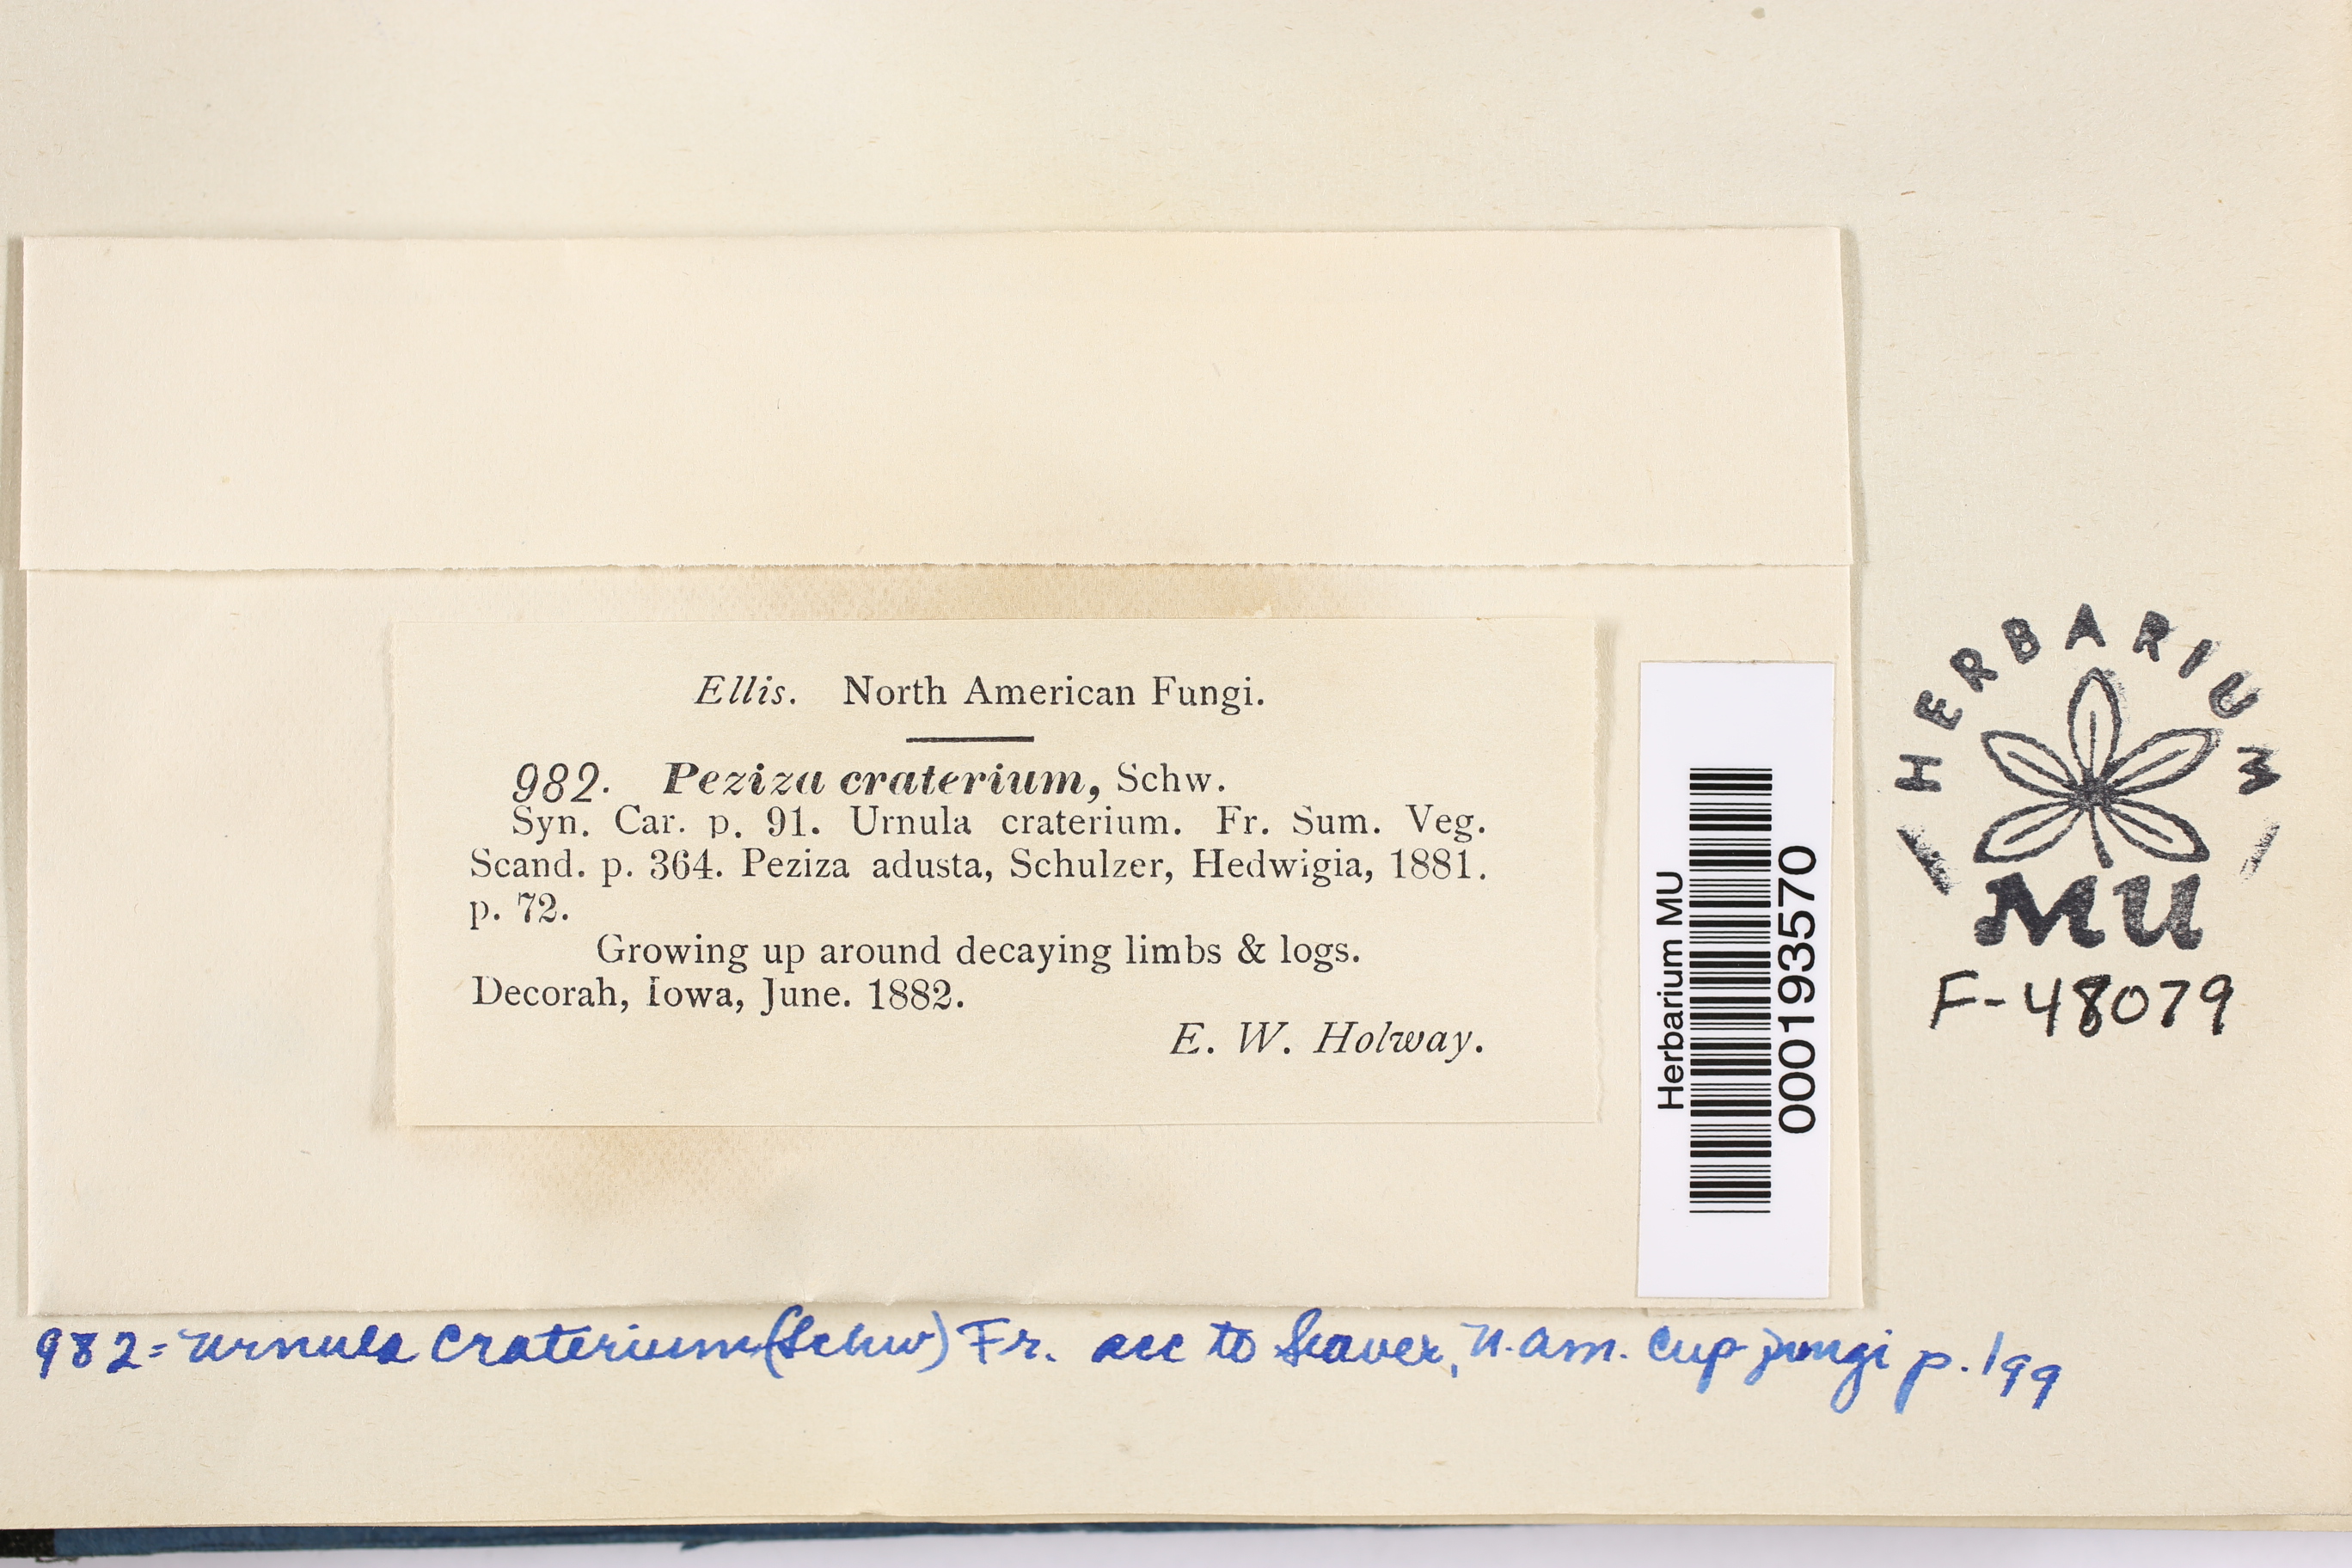 Ellis. North American Fungi.
982. Peziza craterium, Schw.
Syn. Car. p. 91. Urnula craterium. Fr. Sum. Veg.
Scand. p. 364. Peziza adusta, Schulzer, Hedwigia, 1881.
p. 72.
Growing up around decaying limbs & logs.
Decorah, Iowa, June. 1882.
E. W. Holway.
Herbarium MU
000193570
HERBARIUM
MU
F-48079
982 = Urnula Craterium (Schw) Fr. acc to Seaver, N. Am. Cup fungi p. 199